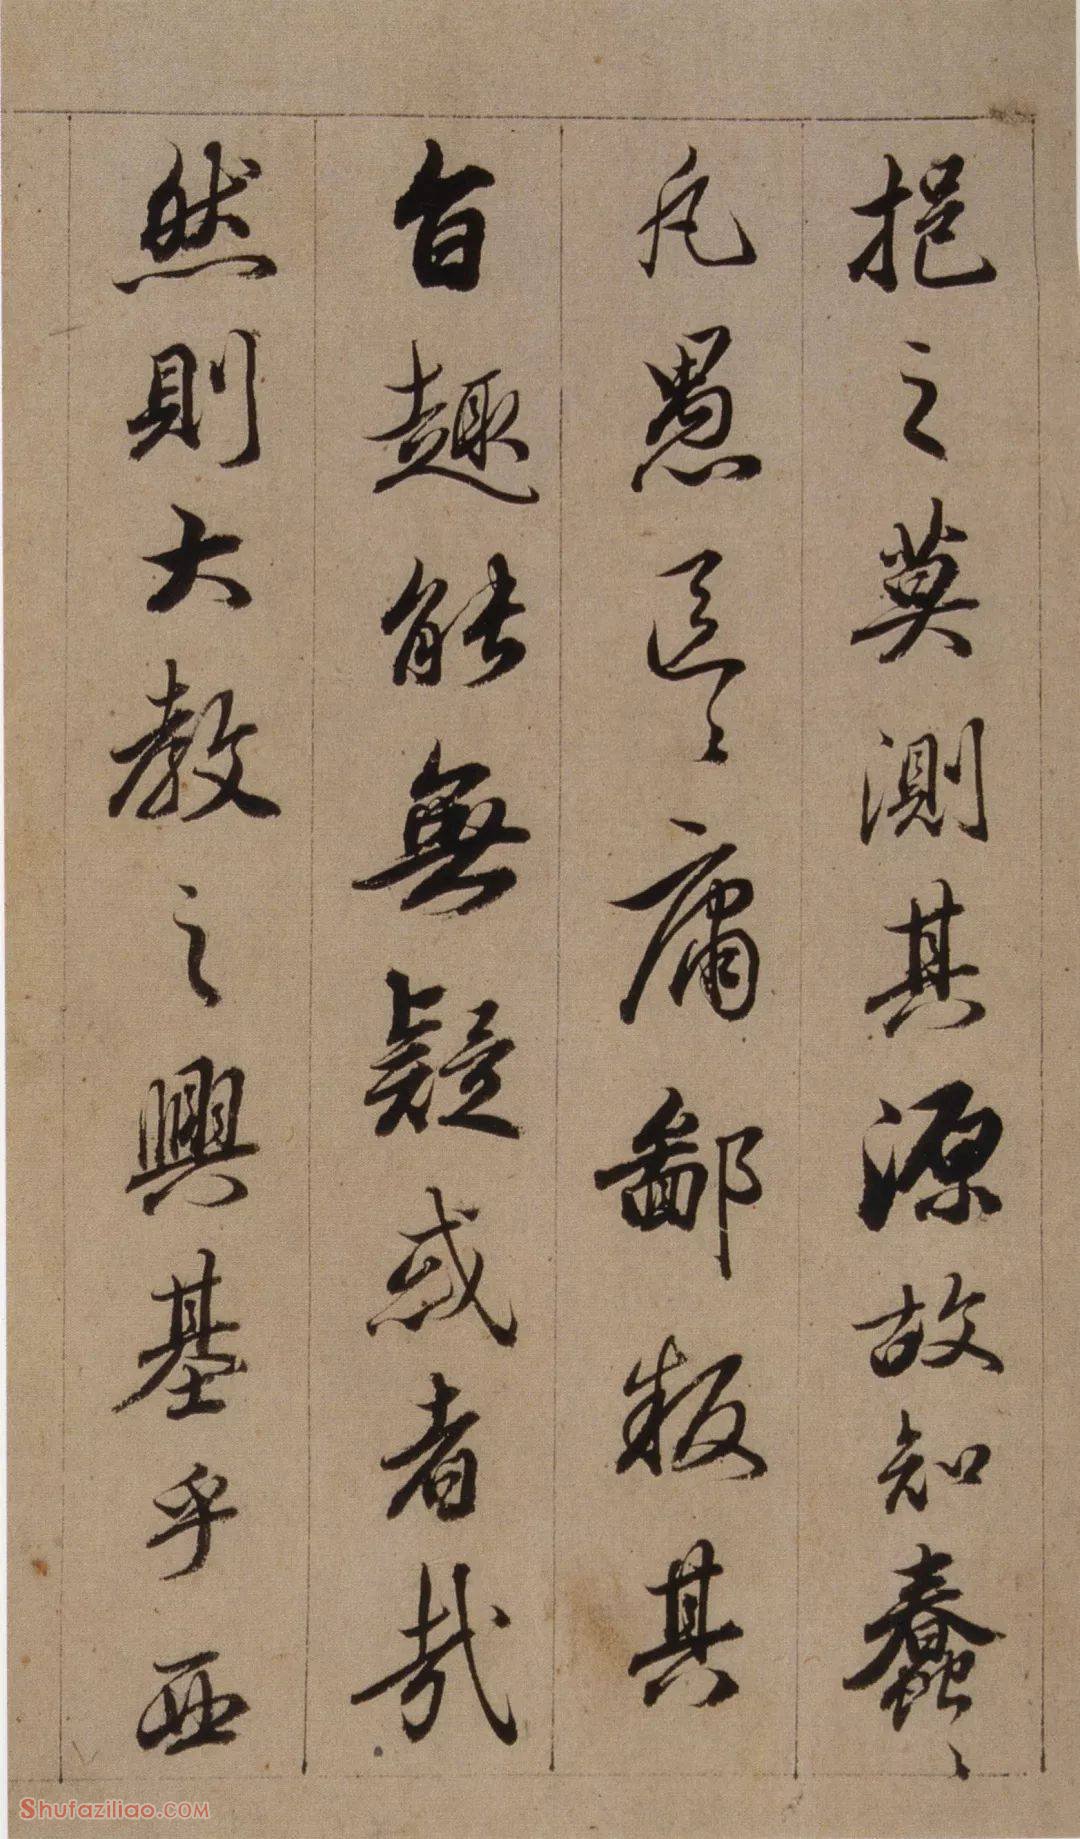 挹之莫測其源故知蠢〻
凡愚區〻庸鄙投其
旨趣能無疑惑者哉
然則大教之興基乎西
Shufaziliao.COM